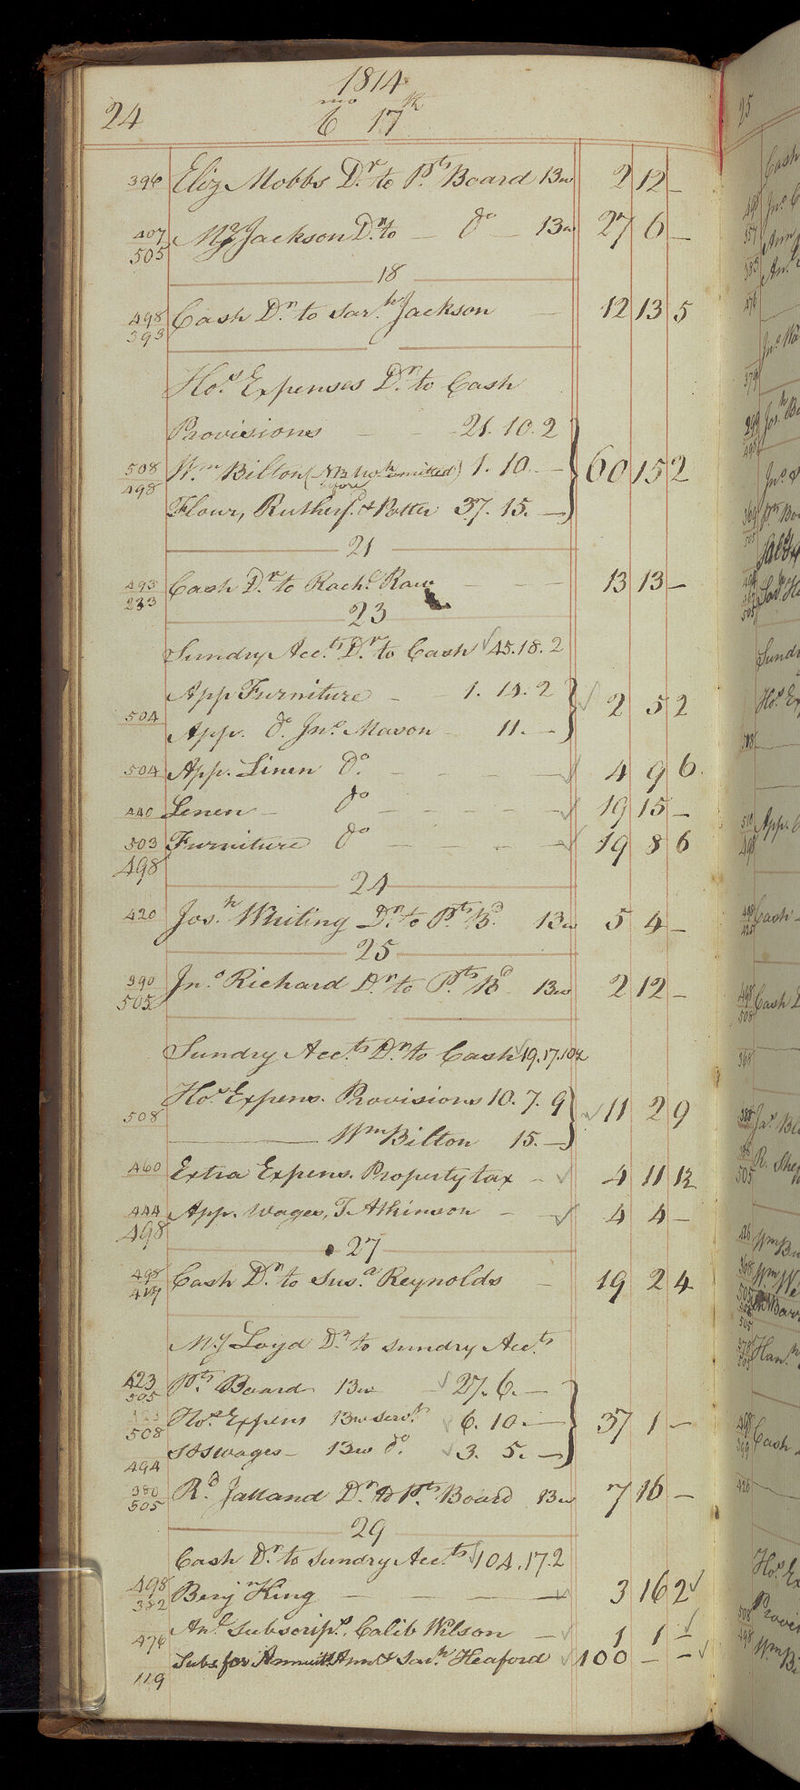 1814
24 mo 6 17th
396 Eliz Mobbs Dr to Pts Board 13w 2 12 —
407 My Jackson Dr to — do — 13w 27 6 —
505
18
498 Cash Dr to Sarh Jackson — 12 13 5
393
Hos. Expenses Dr to Cash
Provisions — — 21. 10. 2
508 Wm Bilton (NB omitted before) 1. 10. — 60 15 2
498 Flour, Rutherfd & Potter 37. 15. —
21
493 Cash Dr to Rachl Raw — — — 13 13 —
233
23
Sundry Accts Dr to Cash √ 45. 18. 2
App Furniture — — 1. 14. 2 √ 2 5 2
504 App. do. Jno Mason — 11. —
504 App. Linen Do. — — — √ 4 9 6
440 Linen — do — — — — √ 19 15 —
503 Furniture do — — — √ 19 8 6
498
24
420 Josh Whiting Dr to Pts Bd. 13w 5 4 —
25
390 Jno Richard Dr to Pts Bd 13w 2 12 —
505
Sundry Accts Dr to Cash √ 19. 17. 10½
Hos. Expens. Provisions 10. 7. 9 √ 11 2 9
508 ——— Wm Bilton 15. —
460 Extra Expens. Property tax — √ 4 11 1½
444 App. Wages, T. Atkinson — √ 4 4 —
498
27
498 Cash Dr to Susa Reynolds — 19 2 4
417
My Loyd Dr to Sundry Accts
423 Pts Board 13w √ 27. 6. —
505
Hos. Expens 13w servt √ 6. 10. — 37 1 —
508
Wages — 13w do. √ 3. 5. —
494
380 Rd Jalland Dr to Pts Board 13w 7 16 —
505
29
Cash Dr to Sundry Accts √ 104. 17. 2
498 Benjn King — — — √ 3 16 2 √
382
476 Anl subscripn. Calib Wilson — √ 1 1 — √
119 Subs for Annuit. Ann & Sarh Heaford √ 100 — — √
25